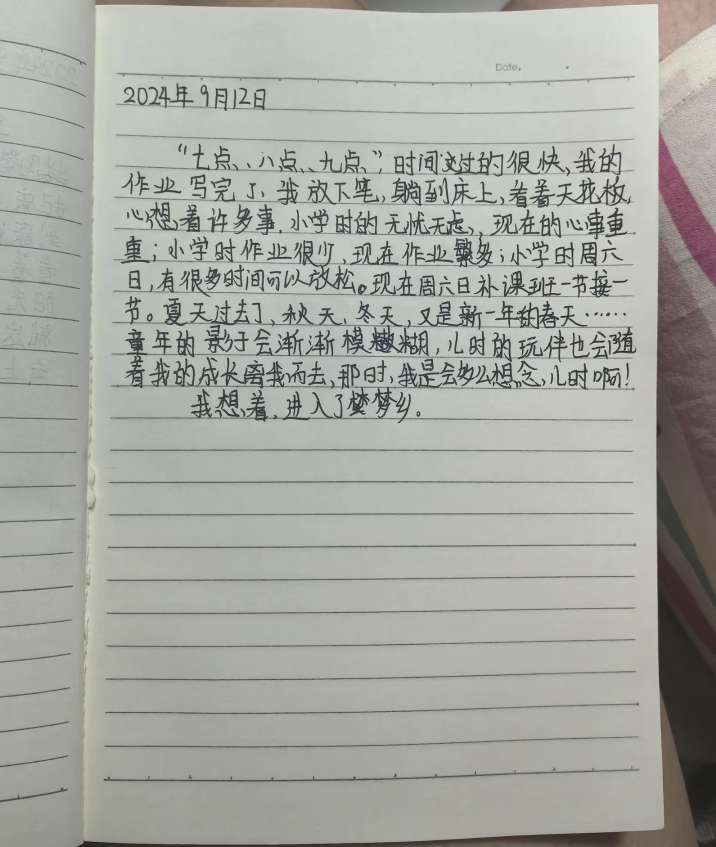 Date.
2024年9月12日
“七点、八点、九点”,时间过的很快,我的
作业写完了,我放下笔,躺到床上,看着天花板,
心想着许多事,小学时的无忧无虑,现在的心事重
重;小学时作业很少,现在作业繁多;小学时周六
日,有很多时间可以放松。现在周六日补课班一节接一
节。夏天过去了,秋天,冬天,又是新一年的春天……
童年的影子会渐渐模糊,儿时的玩伴也会随
着我的成长离我而去,那时,我是会多么想念,儿时啊!
我想着,进入了梦乡。